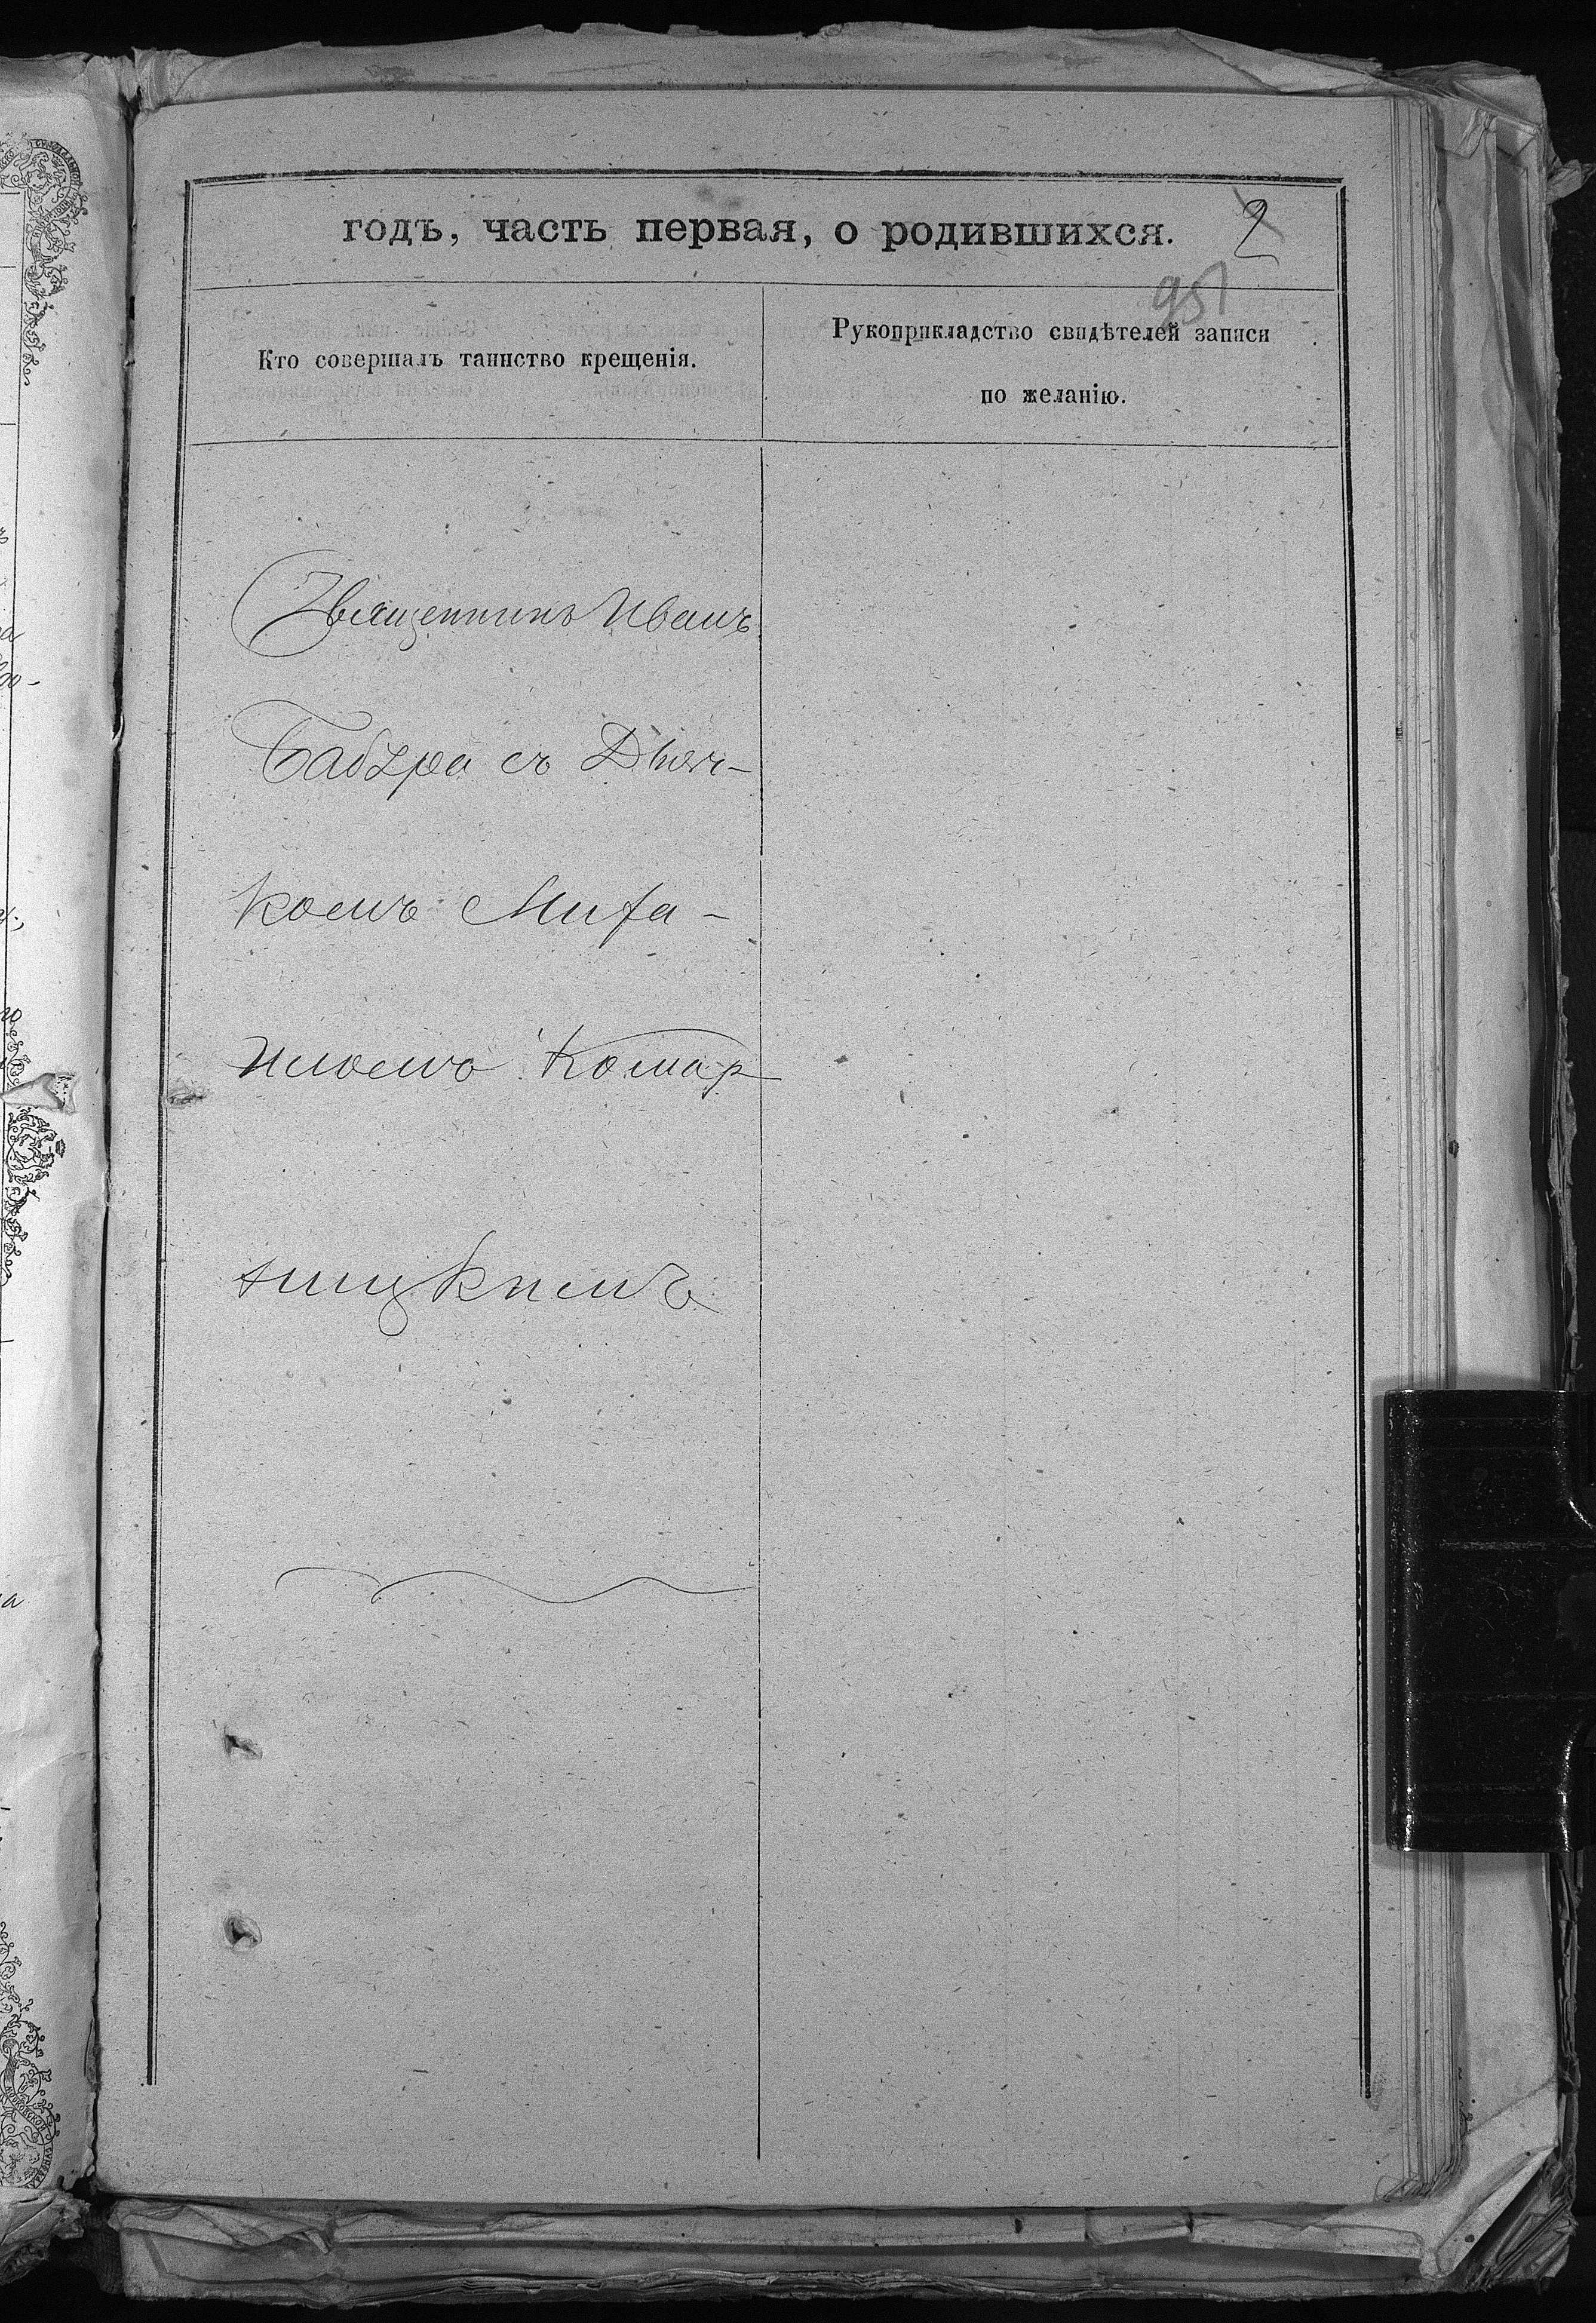 годъ, часть первая, о родившихся.
2
951
Кто совершалъ таинство крещенія.
Рукоприкладство свидѣтелей записи
по желанію.
Священникъ Иванъ
Бабура съ Дьяч-
комъ Миха-
иломъ Комар
ницкимъ